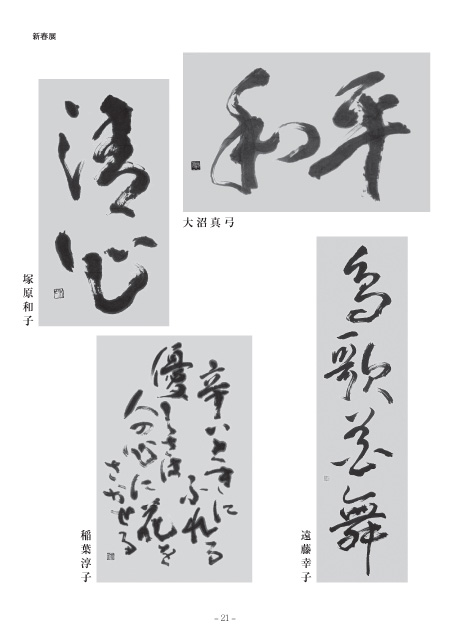 新春展
平和
大沼真弓
清心
塚原和子
鳥歌花舞
遠藤幸子
辛いときに
ふれる
優しさは
人の心に花を
さかせる
稲葉淳子
– 21 –